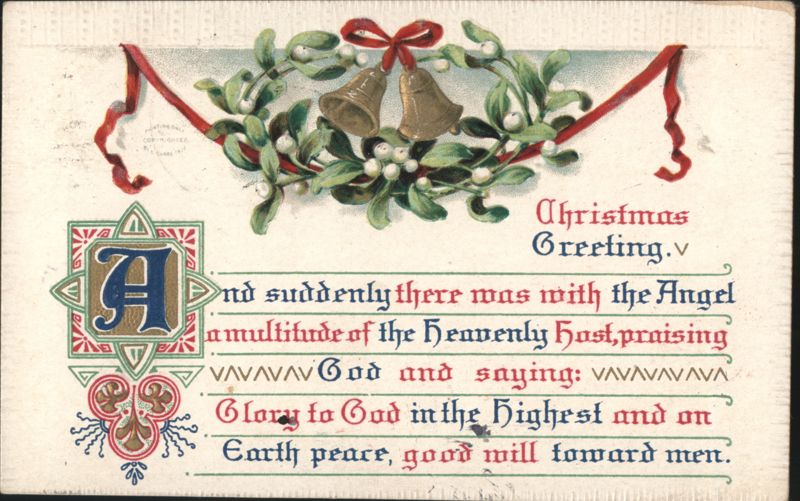 Christmas
Greeting.
And suddenly there was with the Angel
a multitude of the Heavenly Host, praising
God and saying:
Glory to God in the Highest and on
Earth peace, good will toward men.